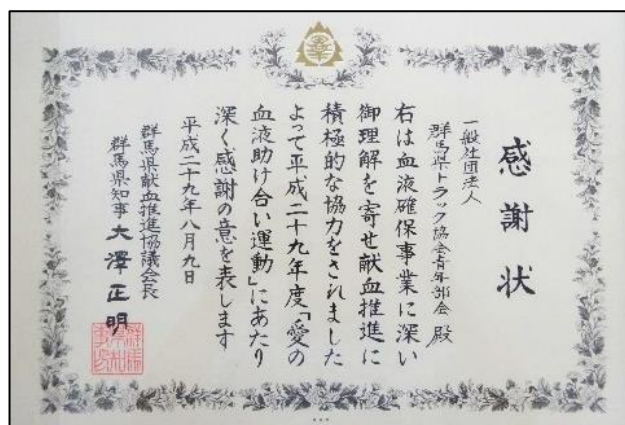 感謝状
一般社団法人
群馬県トラック協会青年部会 殿
右は血液確保事業に深い
御理解を寄せ献血推進に
積極的な協力をされました
よって平成二十九年度「愛の
血液助け合い運動」にあたり
深く感謝の意を表します
平成二十九年八月九日
群馬県献血推進協議会長
群馬県知事 大澤正明